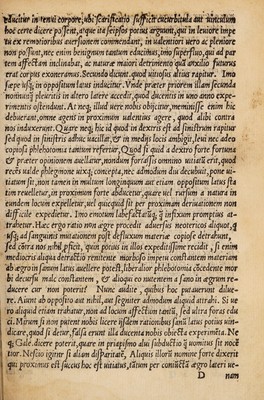 educitur in tenui corpore, ubi scarificatio sufficit cucurbitula aut vinculum
hoc certe dicere possent, atque ita seipsos potius arguunt, qui in leviore impe
tu ex remotioribus aversionem commendant, in vdentiori vero ac pleniore
non possunt, nec enim benignam tantum educimus, imo superfluū, qui ad par
tem affectam inclinabat, ac naturæ maiori detrimento quā auxilio futurus
erat corpus exoneramus. Secundo dicunt, quod vitiosus alius rapitur. Imo
sæpe usq; in oppositum latus inducitur. Vnde præter priorem illam secunda
nonnunq̃ pleuritis in altero latere accedit, quod ducentis in uno anno expe-
rimentis ostendunt. At neq; illud vere nobis obijcitur, meminisse enim hic
debuerant, omne agens in proximum vdentius agere, quod alibi contra
nos induxerunt. Quare neq; hic id quod in dextris est ad sinistrum rapitur
sed quod in sinistris adhuc vacillat, & in medijs locis ambigit, levi nec adeo
copiosa phlebotomia tantum refertur, Quod si quid a dextro forte fortuna
& præter opinionem avellatur, nondum forassis omnino vitiatū erit, quod
recti valde phlegmone vixq; concepta, nec admodum diu decubuit, pone vi-
tiatum sit, non tamen in multum longinquum aut etiam oppositum latus sta
tim revelletur, in proximum forte abducetur, quare vel rursum a natura in
eundem locum expelletur, vel quicquid sit per proximam derivationem non
difficile expedietur. Imo emotum labefactatūq; q̃ infixum promptius at-
trahetur. Hæc ergo ratio non ægre procedit adversus neotericos aliquot,
usq; ad sanguinis mutationem post defluxum materiæ copiose detrahunt,
sed contra nos nihil facit, quin potius in illos expeditissime recidit, si enim
mediocris aliqua detractio renitente morbosa impetu constantem materiam
ab ægro in sanum latus avellere potest, liberalior phlebotomia cædente mor
bi decursu male constantem, & alioqui eo nutentem a sano in ægrum re-
ducere cur non poterit? Nunc audite, quibus hoc putaverunt addi-
re. Aiunt ab opposito aut nihil, aut segniter admodum aliquid attrahi. Si ve
ro aliquid etiam trahatur, non ad locum affectum tantū, sed ultra foras edu
ci. Mirum si non putent nobis licere ijsdem rationibus sanū latus potius vin-
dicare, quod si detur, falsa erunt illa ducenta nobis obiecta experimēta. Ne
q; Gale. dicere poterit, quare in priapismo alui subductio q̃ vomitus sit noce
tior. Nescio igitur si etiam disparitatē. Aliquis illorū nomine forte dixerit
qui proximus est succus hoc est vitiatus, tantum per coniunctā ægro lateri ve-
D nam